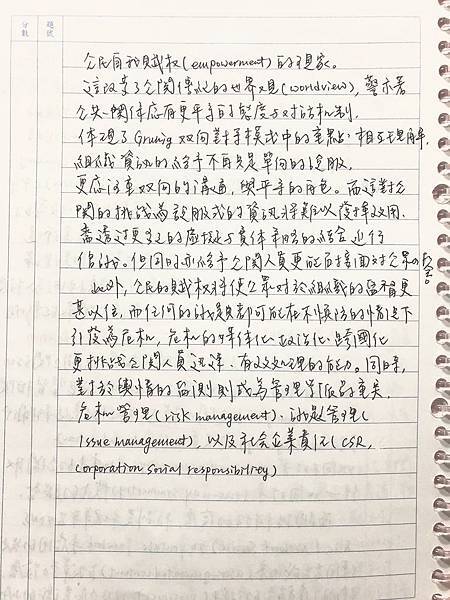 分數 題號
公民自我賦权(empowerment)的現象。
這改变了公關傳統的世界观(worldview),警示着
公共關係应有更平等的態度与对話机制,
体現了Grunig双向对等模式中的重點:相互理解,
組織資訊的給予不再只是單向的說服,
更应注意双向的溝通,與平等的角色。而這對公
關的挑战為說服式的資訊將難以發揮效用.
需透过更多的虛擬与實体手段的結合進行
但同时亦給予公關人員更能直接面对公眾的
此外,公民的賦权將使公眾对於組織的監督更
甚以往,而任何的議題都可能在不慎防的情況下
引發為危机,危机的媒体化、政治化、跨國化
更挑战公關人員迅速、有效处理的能力。同时,
對於輿情的监测則成為管理階層的重点,
危机管理(risk management)、議題管理(
Issue management),以及社会企業責任(CSR,
Corporation social responsibility)